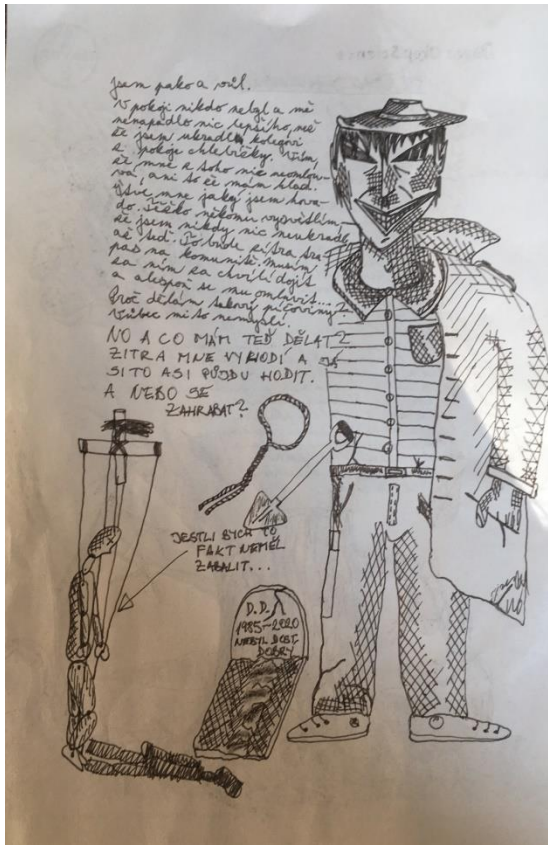 jsem pako a vůl.
V pokoji nikdo nebyl a mě
nenapadlo nic lepšího, než
že jsem ukradl kolegovi
z pokoje chlebíčky. Vím,
že mne z toho nic neomlou-
vá, ani to že mám hlad.
Štve mne jaký jsem hova-
do. Těžko někomu vysvětlím
že jsem nikdy nic neukradl
až teď. To bude zítra
na komunitě. Musím
za ním za chvíli dojít
a alespoň se mu omluvit...
Proč dělám takový píčoviny?
Vůbec mi to nemyslí.
NO A CO MÁM TEĎ DĚLAT?
ZITRA MNE VYHODÍ A JÁ
SI TO ASI PŮJDU HODIT.
A NEBO SE
ZAHRABAT?
JESTLI BYCH TO
FAKT NEMĚL
ZABALIT...
D.D.
1985-2020
NEBYL DOST
DOBRÝ